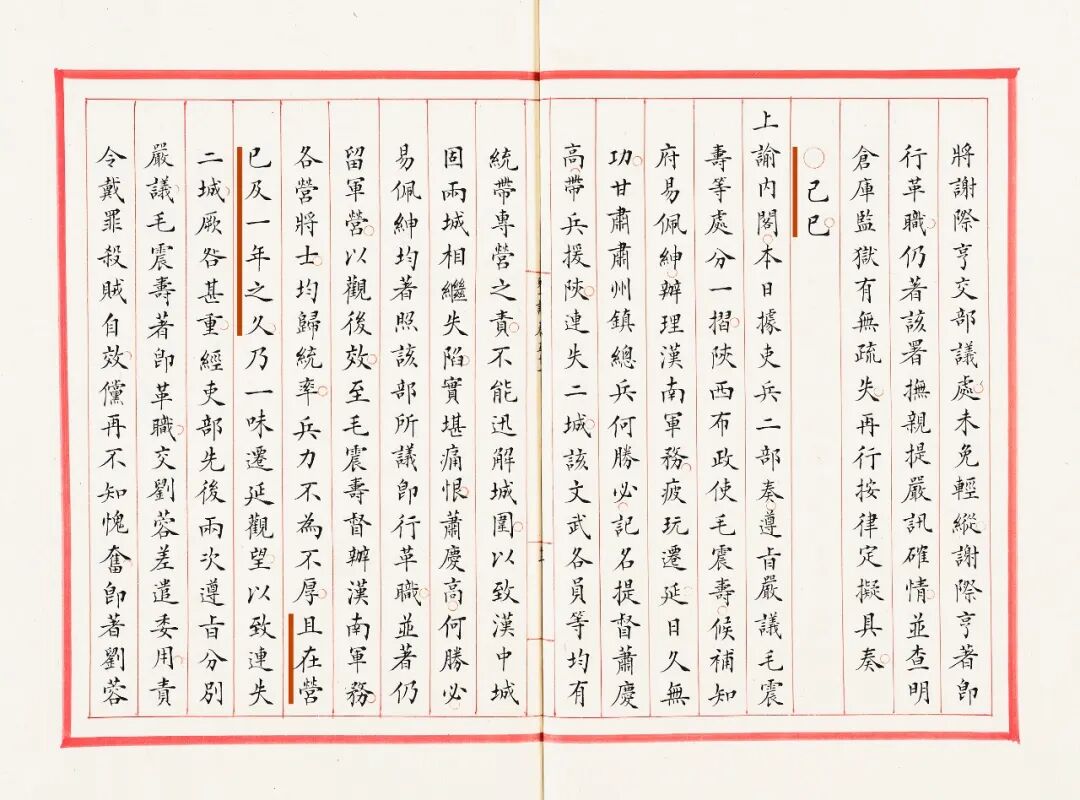 將謝際亨交部議處未免輕縱謝際亨著即
行革職仍著該署撫親提嚴訊確情並查明
倉庫監獄有無疏失再行按律定擬具奏
○己巳
上諭內閣本日據吏兵二部奏遵旨嚴議毛震
壽等處分一摺陝西布政使毛震壽候補知
府易佩紳辦理漢南軍務疲玩遷延日久無
功甘肅肅州鎮總兵何勝必記名提督蕭慶
高帶兵援陝連失二城該文武各員等均有
統帶專營之責不能迅解城圍以致漢中城
固兩城相繼失陷實堪痛恨蕭慶高何勝必
易佩紳均著照該部所議即行革職並著仍
留軍營以觀後效至毛震壽督辦漢南軍務
各營將士均歸統率兵力不為不厚且在營
已及一年之久乃一味遷延觀望以致連失
二城厥咎甚重經吏部先後兩次遵旨分別
嚴議毛震壽著即革職交劉蓉差遣委用責
令戴罪殺賊自效儻再不知愧奮即著劉蓉